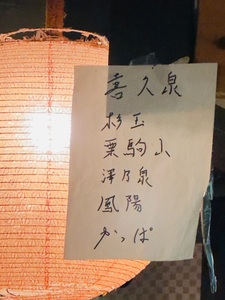 喜久泉
杉玉
栗駒山
澤乃泉
鳳陽
かっぱ